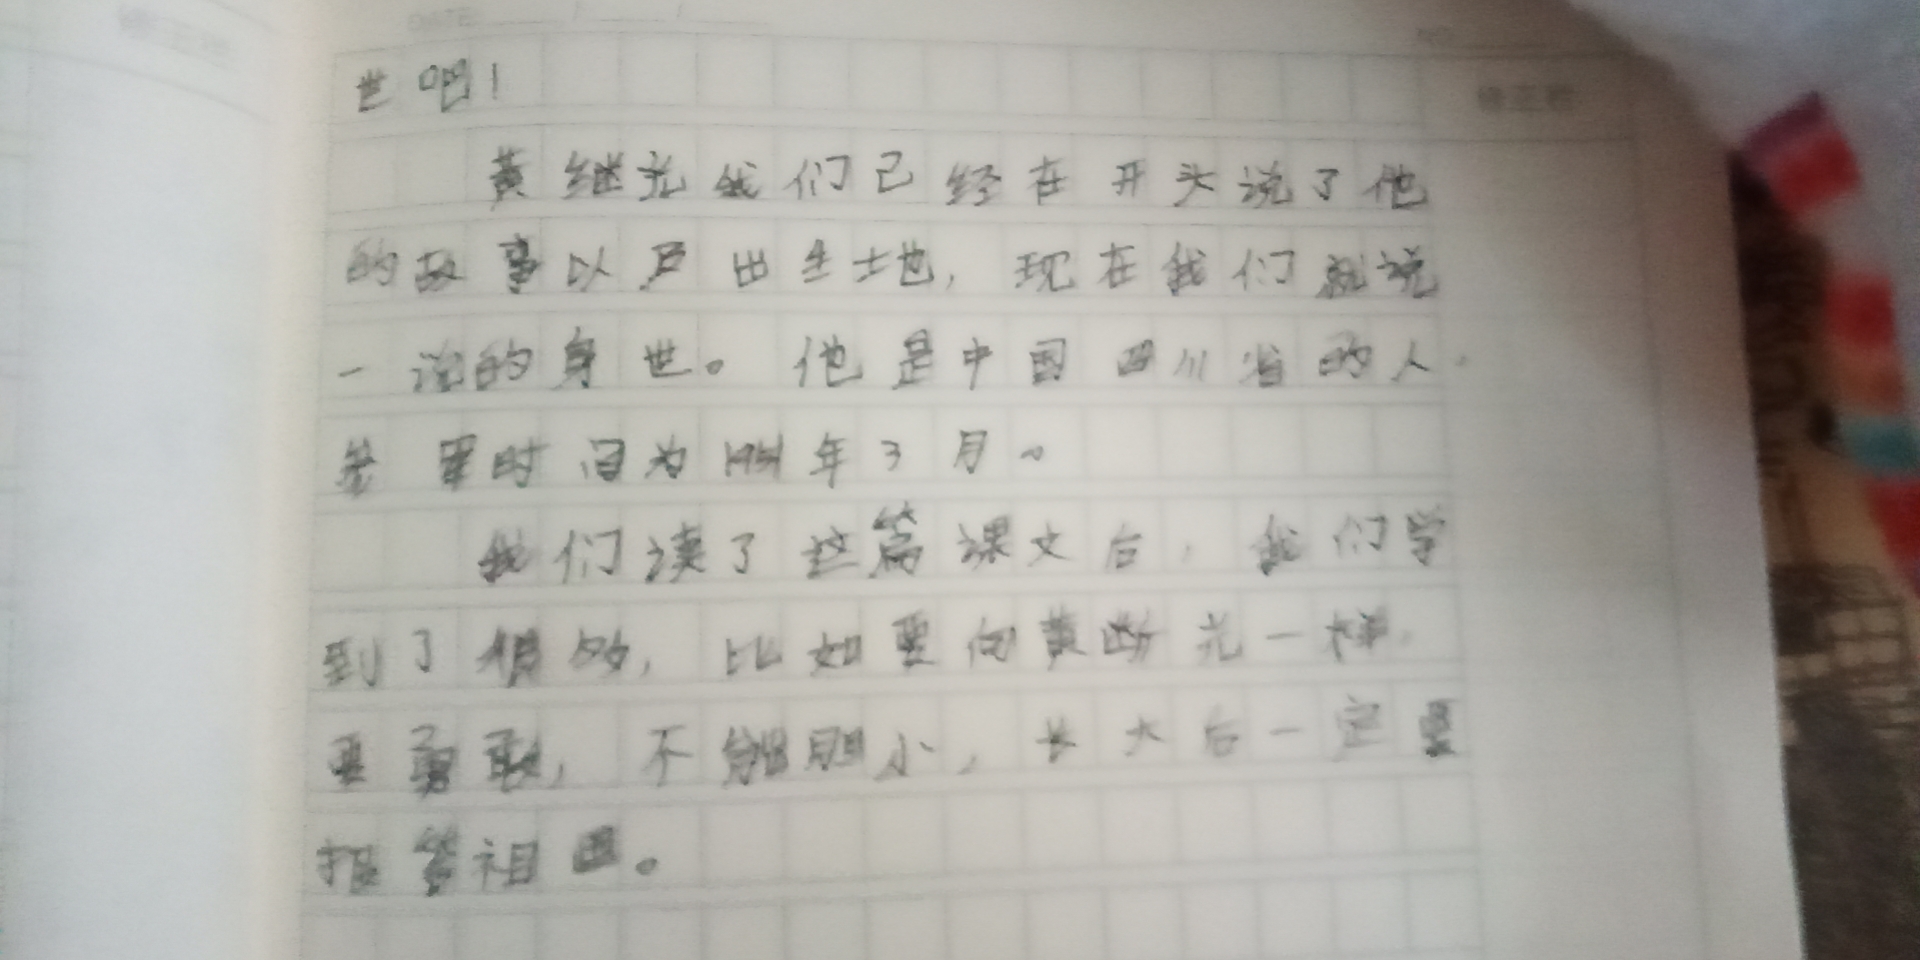 DATE
世吧！
黄继光我们已经在开头说了他
的故事以及出生地，现在我们就说
一说的身世。他是中国四川省的人，
参军时间为1951年3月。
我们读了这篇课文后，我们学
到了很多，比如要向黄继光一样，
要勇敢，不能胆小，长大后一定要
报答祖国。